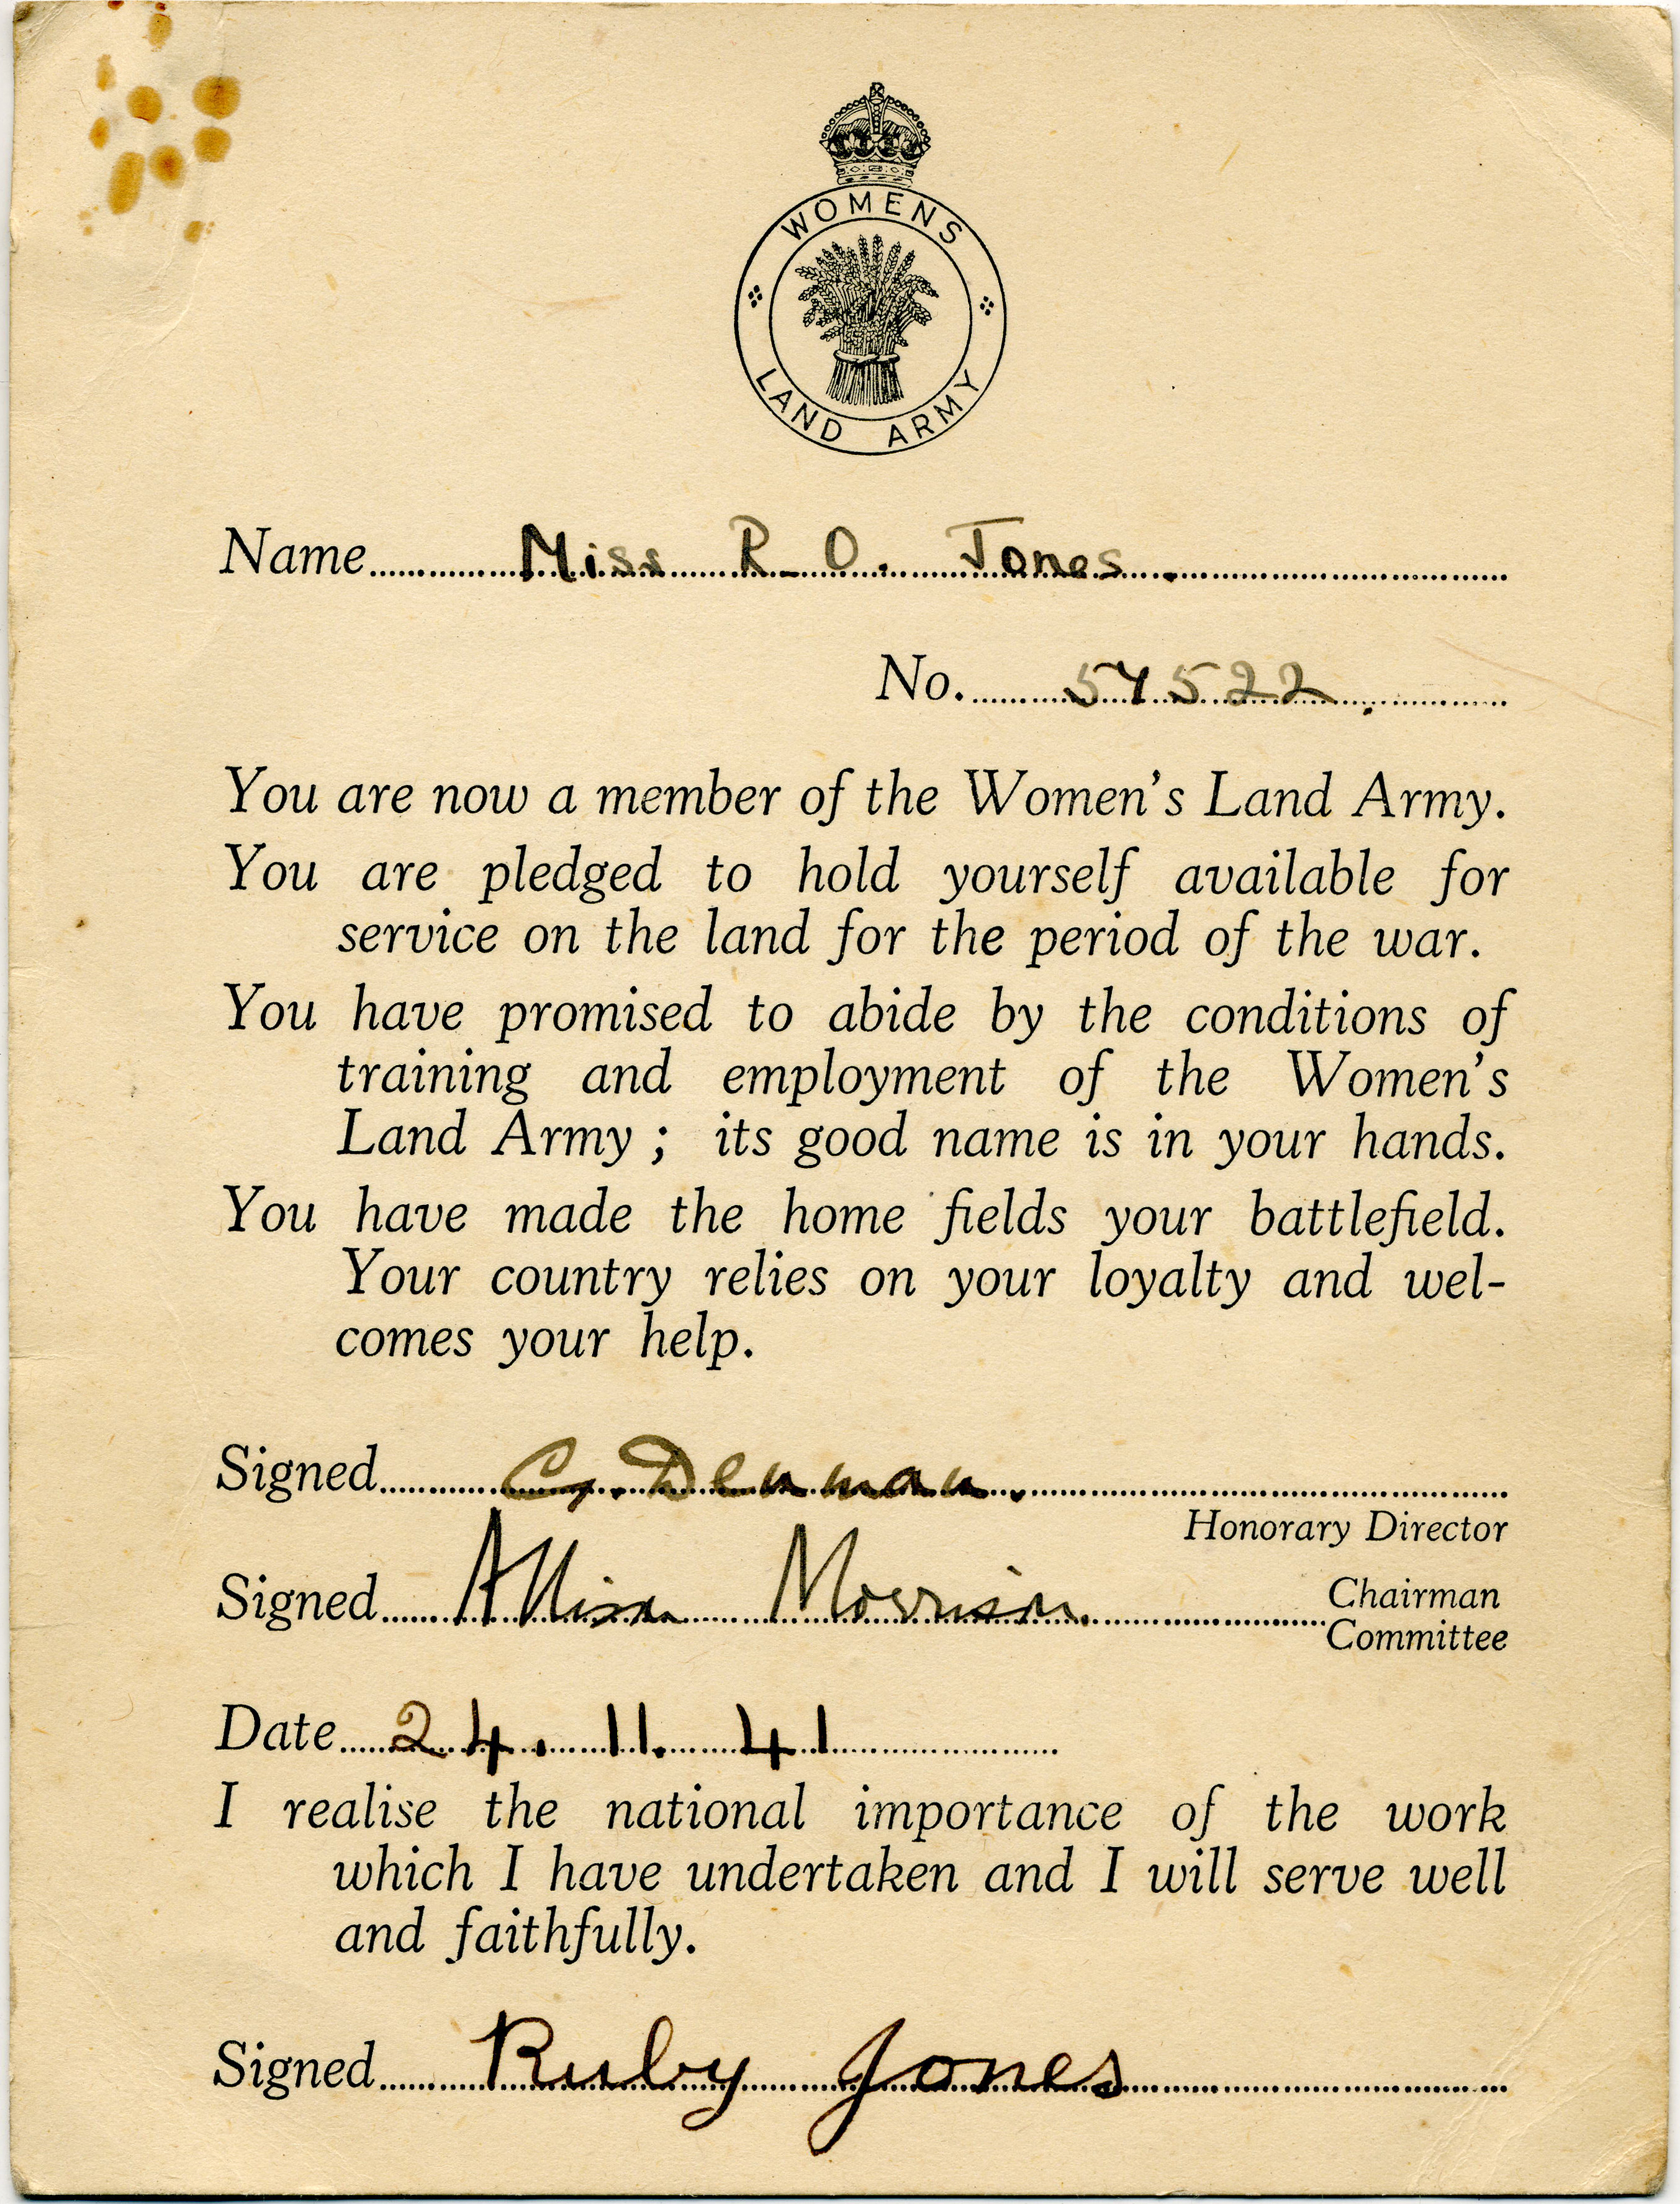 WOMENS
LAND ARMY
Name Miss R. O. Jones.
No. 57522.
You are now a member of the Women's Land Army.
You are pledged to hold yourself available for
service on the land for the period of the war.
You have promised to abide by the conditions of
training and employment of the Women's
Land Army ; its good name is in your hands.
You have made the home fields your battlefield.
Your country relies on your loyalty and wel-
comes your help.
Signed G. Denman.
Honorary Director
Signed Allison Morrison. Chairman
Committee
Date 24. 11. 41
I realise the national importance of the work
which I have undertaken and I will serve well
and faithfully.
Signed Ruby Jones